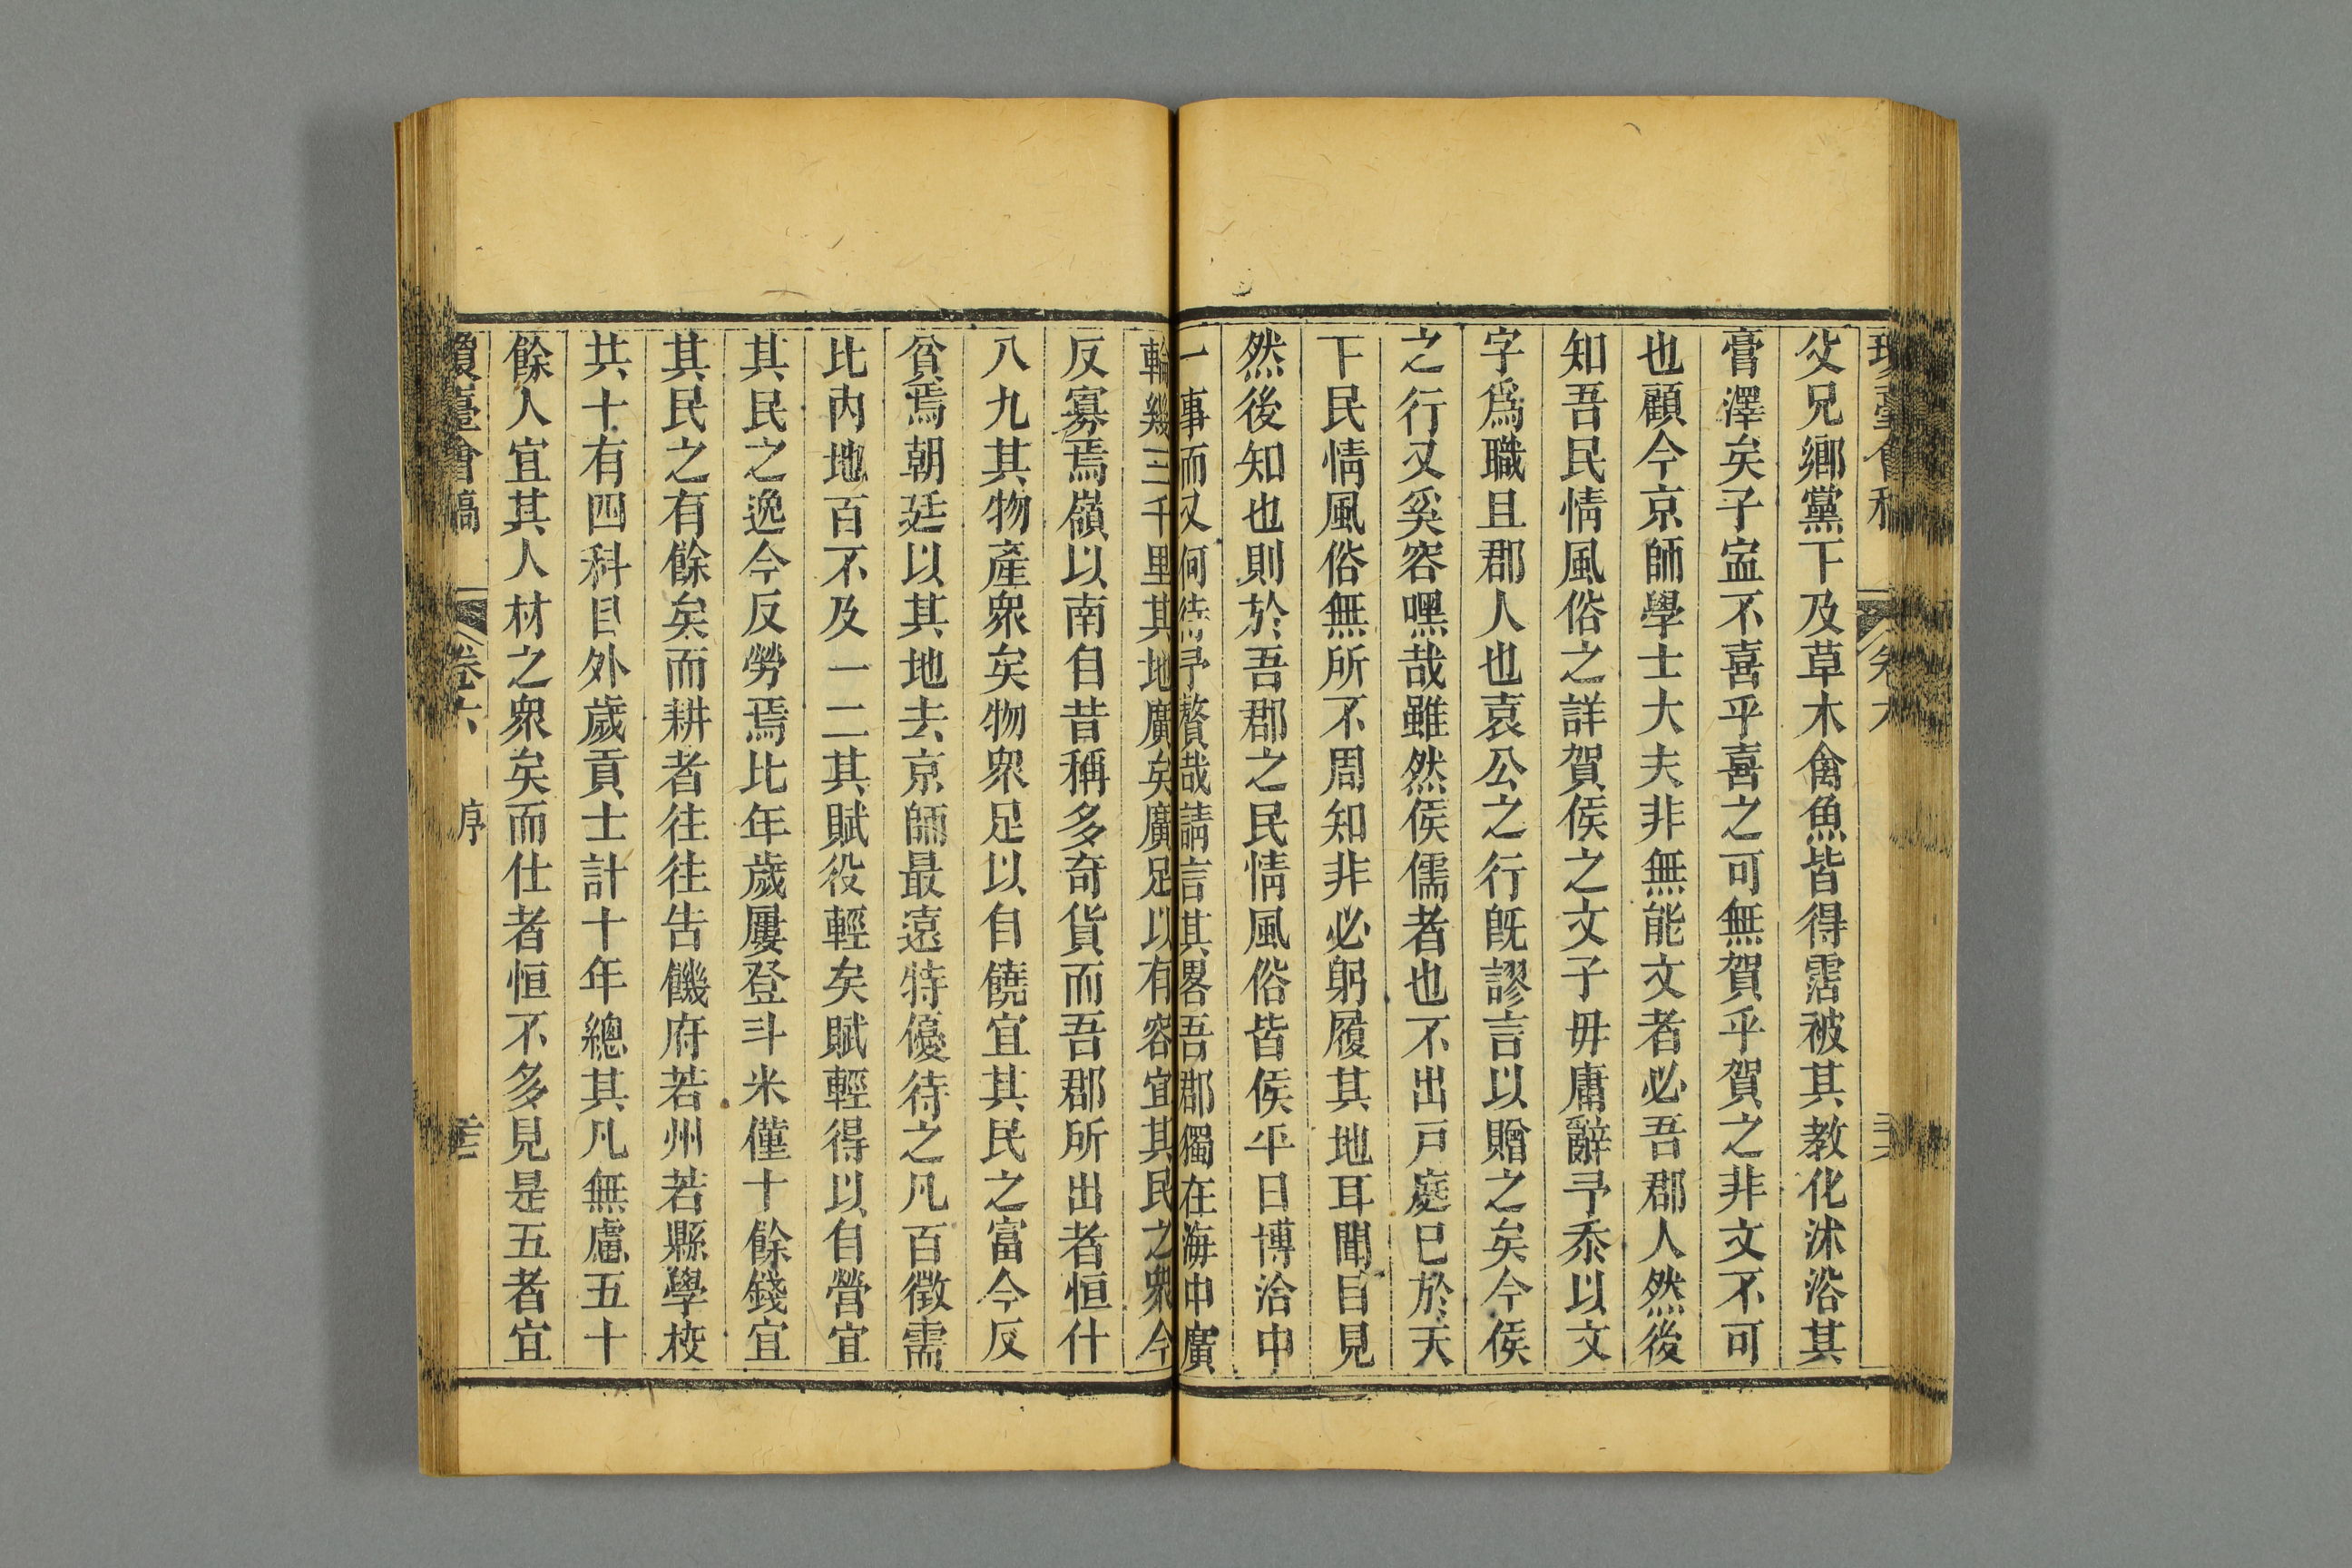 父兄鄉黨下及草木禽魚皆得霑被其教化沭浴其
膏澤矣子盍不喜乎喜之可無賀乎賀之非文不可
也顧今京師學士大夫非無能文者必吾郡人然後
知吾民情風俗之詳賀侯之文子毋庸辭予忝以文
字爲職且郡人也袁公之行旣謬言以贈之矣今侯
之行又奚容嘿哉雖然侯儒者也不出戸庭已於天
下民情風俗無所不周知非必躬履其地耳聞目見
然後知也則於吾郡之民情風俗皆侯平日博洽中
一事而又何待予贅哉請言其畧吾郡獨在海中廣
輪幾三千里其地廣矣廣足以有容宜其民之衆今
反寡焉嶺以南自昔稱多奇貨而吾郡所出者恒什
八九其物產衆矣物衆足以自饒宜其民之富今反
貧焉朝廷以其地去京師最遠特優待之凡百徵需
比內地百不及一二其賦役輕矣賦輕得以自營宜
其民之逸今反勞焉比年歲屢登斗米僅十餘錢宜
其民之有餘矣而耕者往往告饑府若州若縣學校
共十有四科目外歲貢士計十年總其凡無慮五十
餘人宜其人材之衆矣而仕者恒不多見是五者宜
瓊臺會稿 卷六 序